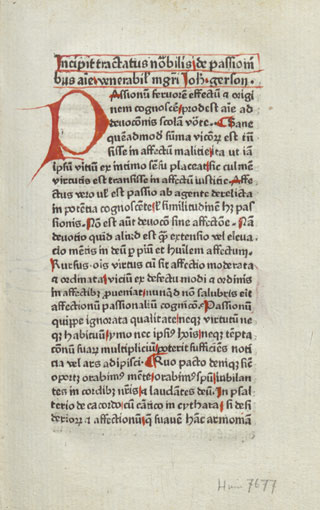 Incipit tractatus nobilis de passioni
bus aīe venerabil̄ mgr̄i Joh. gerson.
Passionū feruorē effectū ⁊ origi
nem cognosce᷒ prodest aīe ad
deuocōnis scolā vōte. Sane
queadmod sūma vicior᷒ est trā
sisse in affectū maliciei ita ut iā
ipsū vitiū ex intimo sēsu placeat sic culmē
virtutis est transisse in affectū iusticie. Affe
ctus vero ul̄ est passio ab agente derelicta
in potētia cognoscēte l̄ similitudinē hȝ pas
sionis. Nō est aut deuocō sine affectōne. Nā
deuotio quid aliud est qȝ extensio vel eleua
cio mētis in deū p̄ piū et hūilem affectum.
Rursus oīs virtus cū sit affectio moderata
⁊ ordinata viciū ex defectu modi ⁊ ordinis
in affectibȝ pueniat nūquid nō salubris erit
affectionū passionaliū cognicō. Passionū
quippe ignorata qualitate neqȝ virtutū ne
qȝ habituū ymo nec ipsȝ hoīs neqȝ tēpta
cōnū suaȝ multipliciū poterit sufficiēs noti
cia vel ars adipisci. Quo pacto deniqȝ sic
oportȝ orabimȝ mēte orabimȝ spū iubilan
tes in cordibȝ nr̄is ⁊ laudātes deū. In psal
terio decacordo cū cātico in cythara si desi
derioȝ ⁊ affectionū qȝ suauē hāc armoniā
Hain 7677